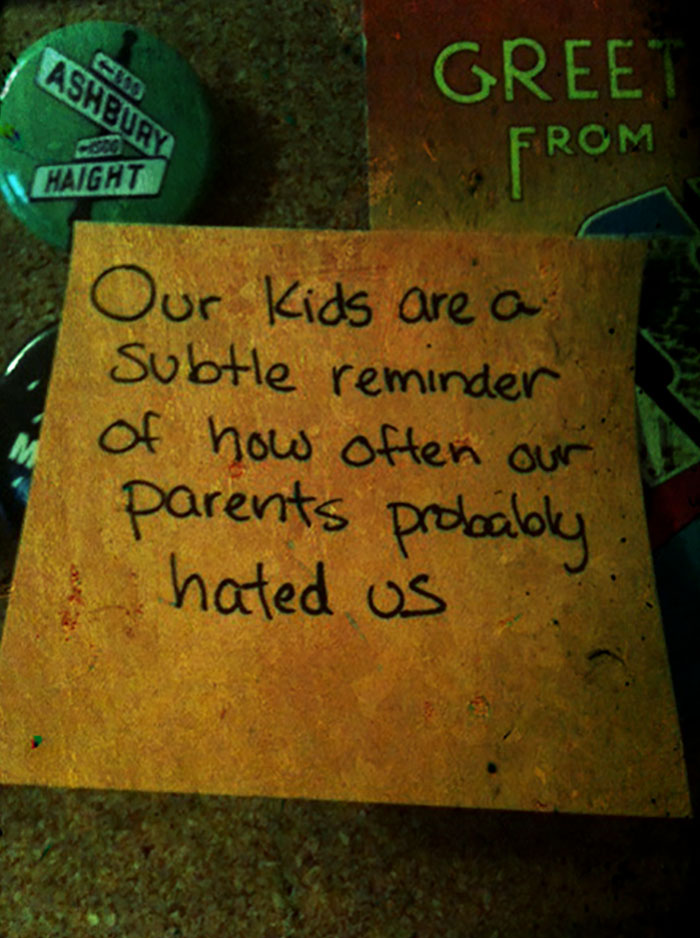 ←600
ASHBURY
←1500
HAIGHT
GREET
FROM
Our kids are a
subtle reminder
of how often our
parents probably
hated us
M